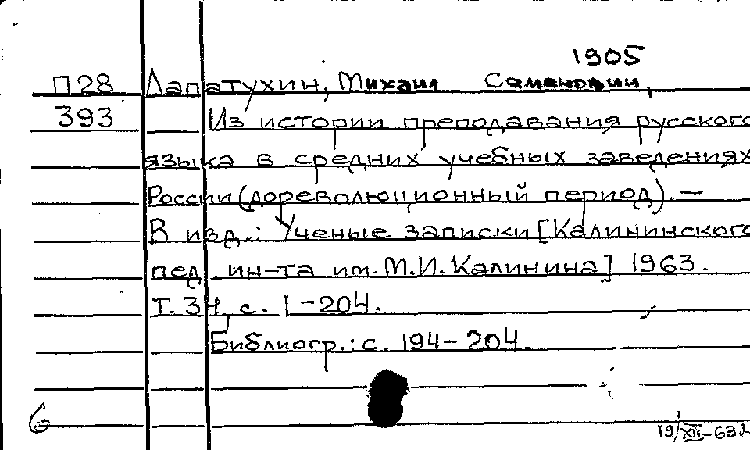 1905
П28 Лапатухин, Михаил Семенович,
393 Из истории преподавания русского
языка в средних учебных заведениях
России (дореволюционный период). —
В изд.: Ученые записки [Калининского
пед. ин-та им. М.И. Калинина] 1963.
Т. 34, с. 1-204.
Библиогр.: с. 194-204.
6
19/XII-63г